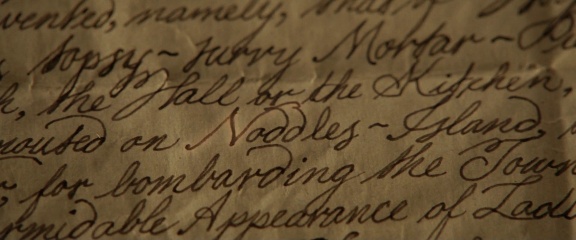 vented, namely, that of
topsy~turvy Mortar~
the Hall or the Kitchen,
on Noddles~Island,
for bombarding the Town
Appearance of